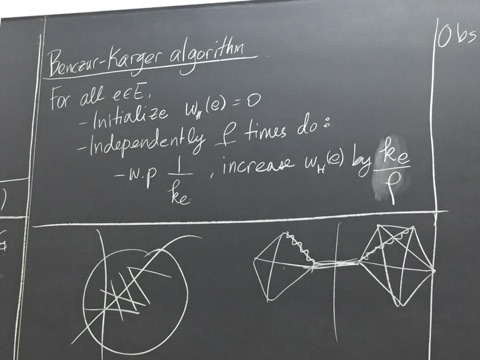 Obs
Benczur-Karger algorithm
For all e∈E:
- Initialize w_H(e) = 0
- Independently ρ times do:
- w.p 1/k_e, increase w_H(e) by k_e/ρ
)